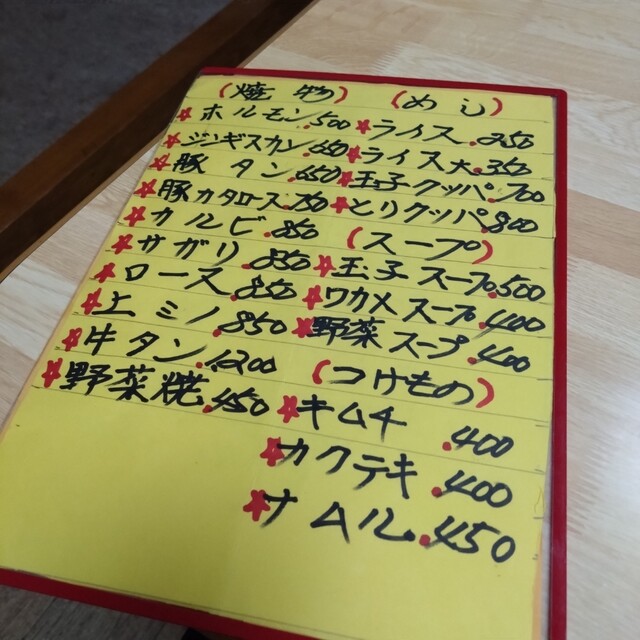 (焼物)
★ホルモン.500
★ジンギスカン.650
★豚タン.650
★豚カタロース.750
★カルビ.850
★サガリ.850
★ロース.850
★上ミノ.850
★牛タン.1200
★野菜焼.450
(めし)
★ライス.250
★ライス大.350
★玉子クッパ.700
★とりクッパ.800
(スープ)
★玉子スープ.500
★ワカメスープ.400
★野菜スープ.400
(つけもの)
★キムチ.400
★カクテキ.400
★ナムル.450